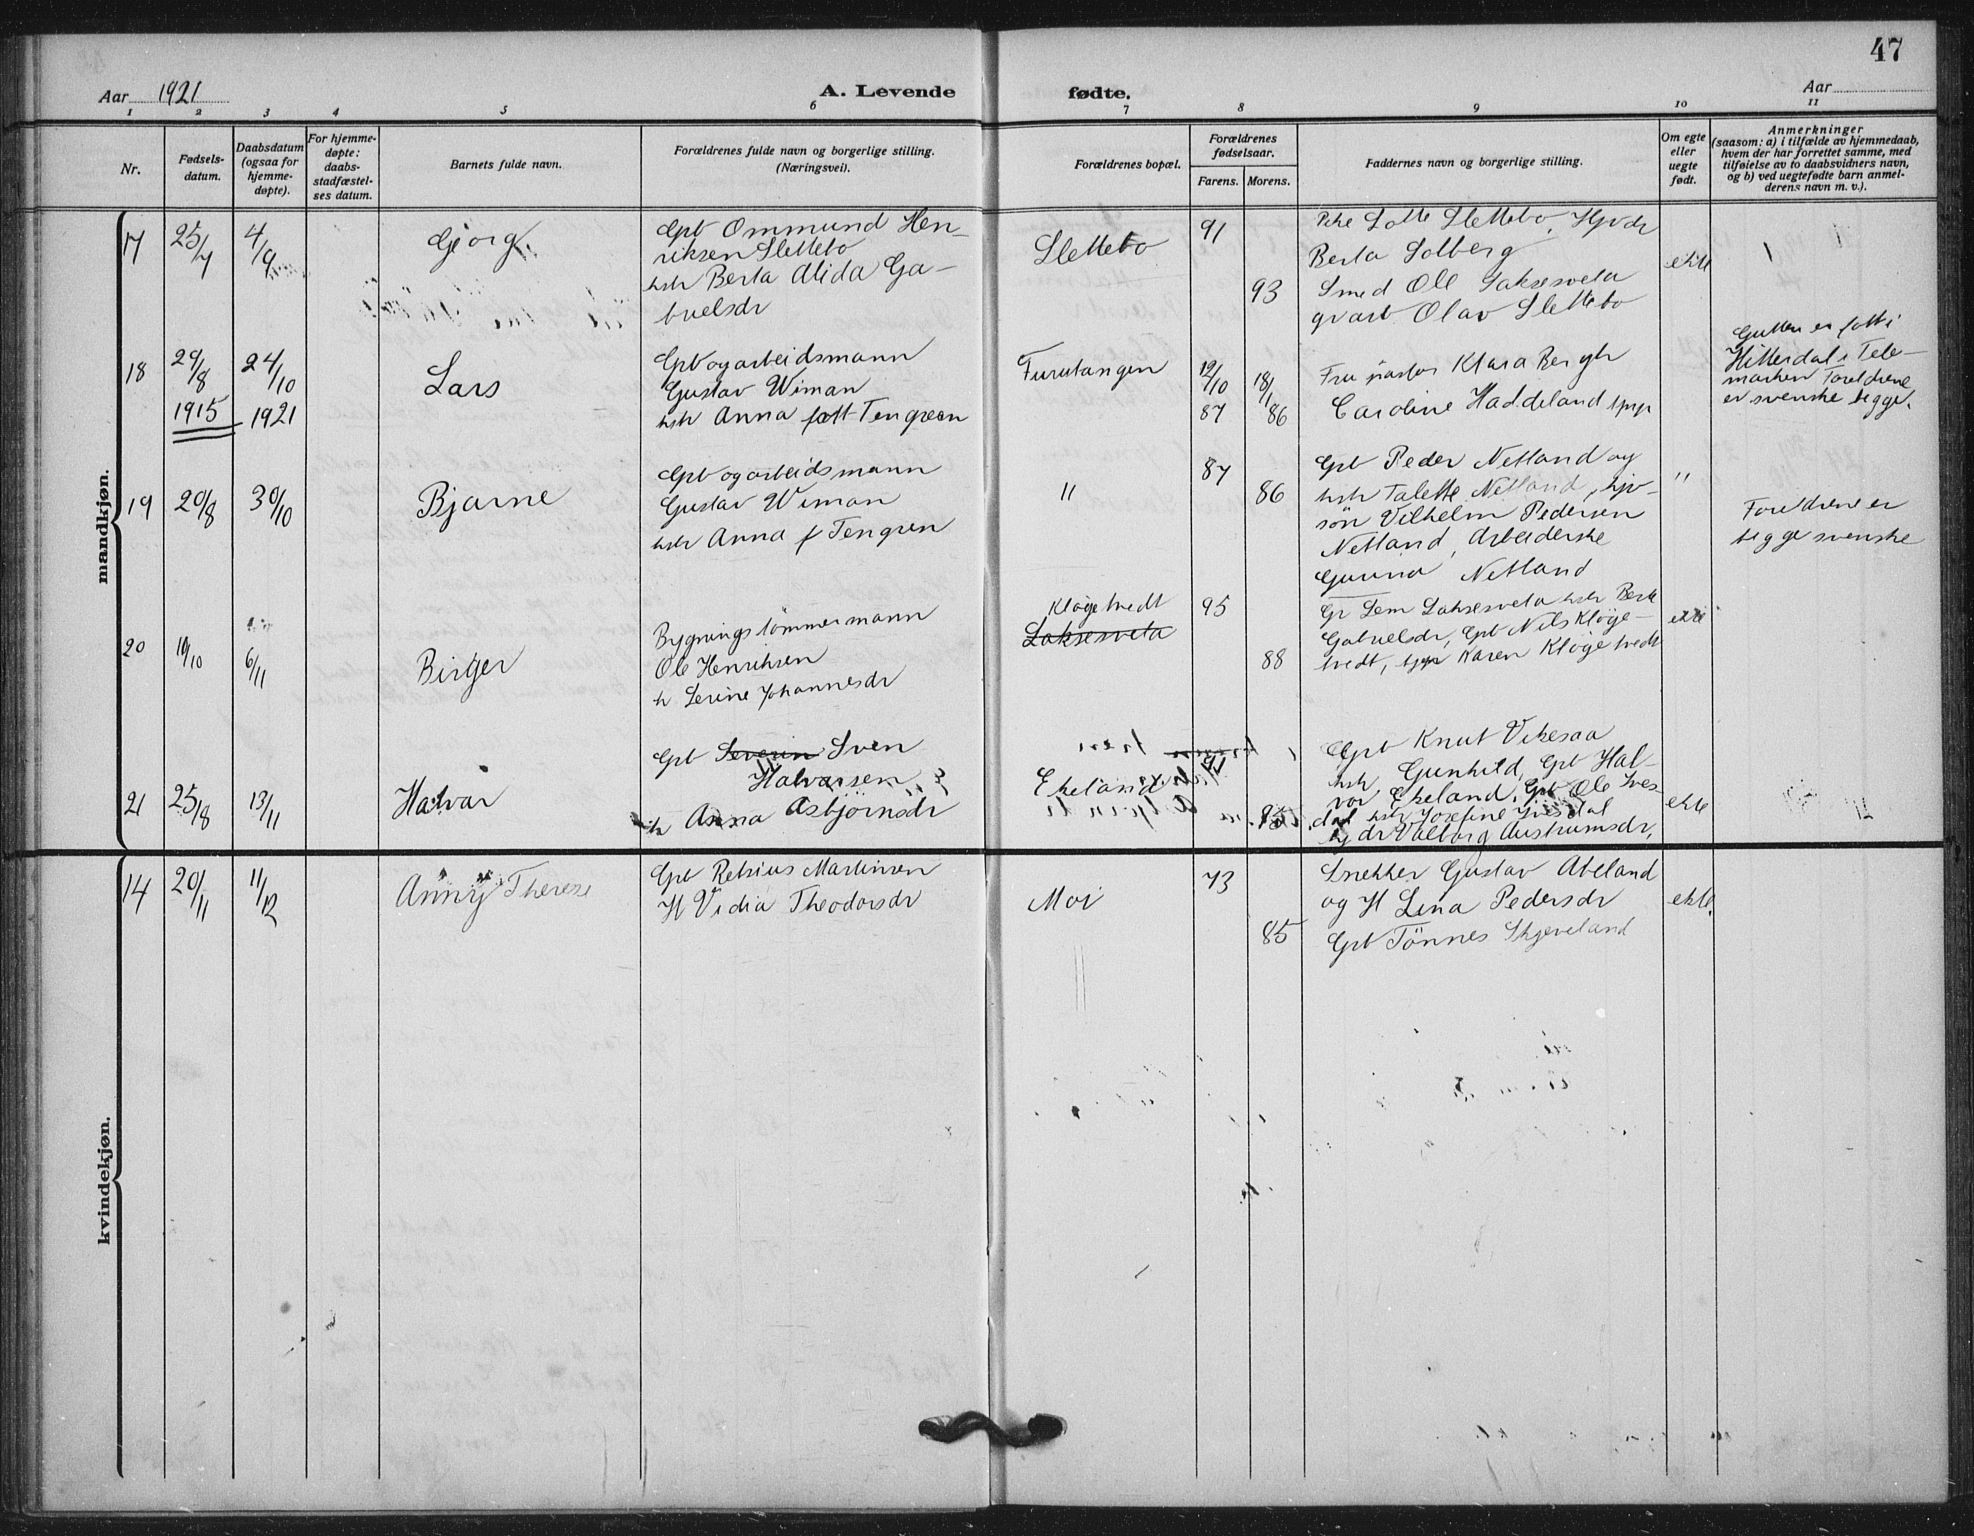 47
Aar 1921
A. Levende fødte.
Aar
1 2 3 4 5 6 7 8 9 10 11
Nr.
Fødsels-
datum.
Daabsdatum
(ogsaa for
hjemme-
døpte).
For hjemme-
døpte:
daabs-
stadfæstel-
ses datum.
Barnets fulde navn.
Forældrenes fulde navn og borgerlige stilling.
(Næringsvei).
Forældrenes bopæl.
Forældrenes
fødselsaar.
Farens. Morens.
Faddernes navn og borgerlige stilling.
Om egte
eller
uegte
født.
Anmerkninger
(saasom: a) i tilfælde av hjemmedaab,
hvem der har forrettet samme, med
tilføielse av to daabsvidners navn,
og b) ved uegtefødte barn anmel-
derens navn m. v.).
mandkjøn.
17
25/7
4/9
Georg
Gpb Ommund Hen-
riksen Slettebo
hstr Berta Alida Ga-
brielsdr
Slettebo
91
93
Pike Lotte Slettebo,
Berta Solberg
Smed Ole Laksesvela
Olav Slettebo
ekte
18
29/8
1915
24/10
1921
Lars
Gpb og arbeidsmann
Gustav Wiman
hstr Anna født Tengreen
Furutangen
12/10
87
18/1
86
Fru pastor Klara Bergh
Caroline Haddeland
Gutten er født i
Hitterdal i Tele-
marken Foreldrene
er svenske begge.
19
20/8
30/10
Bjarne
Gpb og arbeidsmann
Gustav Wiman
hstr Anna f Tengren
"
87
86
Gpb Peder Netland og
hstr Talette Netland,
søn Vilhelm Pedersen
Netland, Arbeiderske
Gunna Netland
"
Foreldrene er
begge svenske
20
19/10
6/11
Birger
Bygningstømmermann
Ole Henriksen
h Serine Johannesdr
Kløgetvedt
Laksesvela
95
88
Gr Sem Laksesvela hstr Berte
Gabrielsdr, Gpb Nils Kløge-
tvedt, Karen Kløgetvedt
ekte
21
25/8
13/11
Halvar
Gpb Severin Sven
Halvarsen
h Anna Asbjørnsdr
Ekeland
Gpb Knut Vikesaa
hstr Gunhild, Gpb Hal-
vor Ekeland, Gpb Ole Ives-
dal hstr Josefine Ivesdal
dr Valborg Austrumsdr,
ekte
kvindekjøn.
14
20/11
11/12
Anny Therese
Gpb Retsius Martinsen
H Vidia Theodorsdr
Moi
73
85
Snekker Gustav Abeland
og H Lina Pedersdr
Gpb Tønnes Skjeveland
ekte.